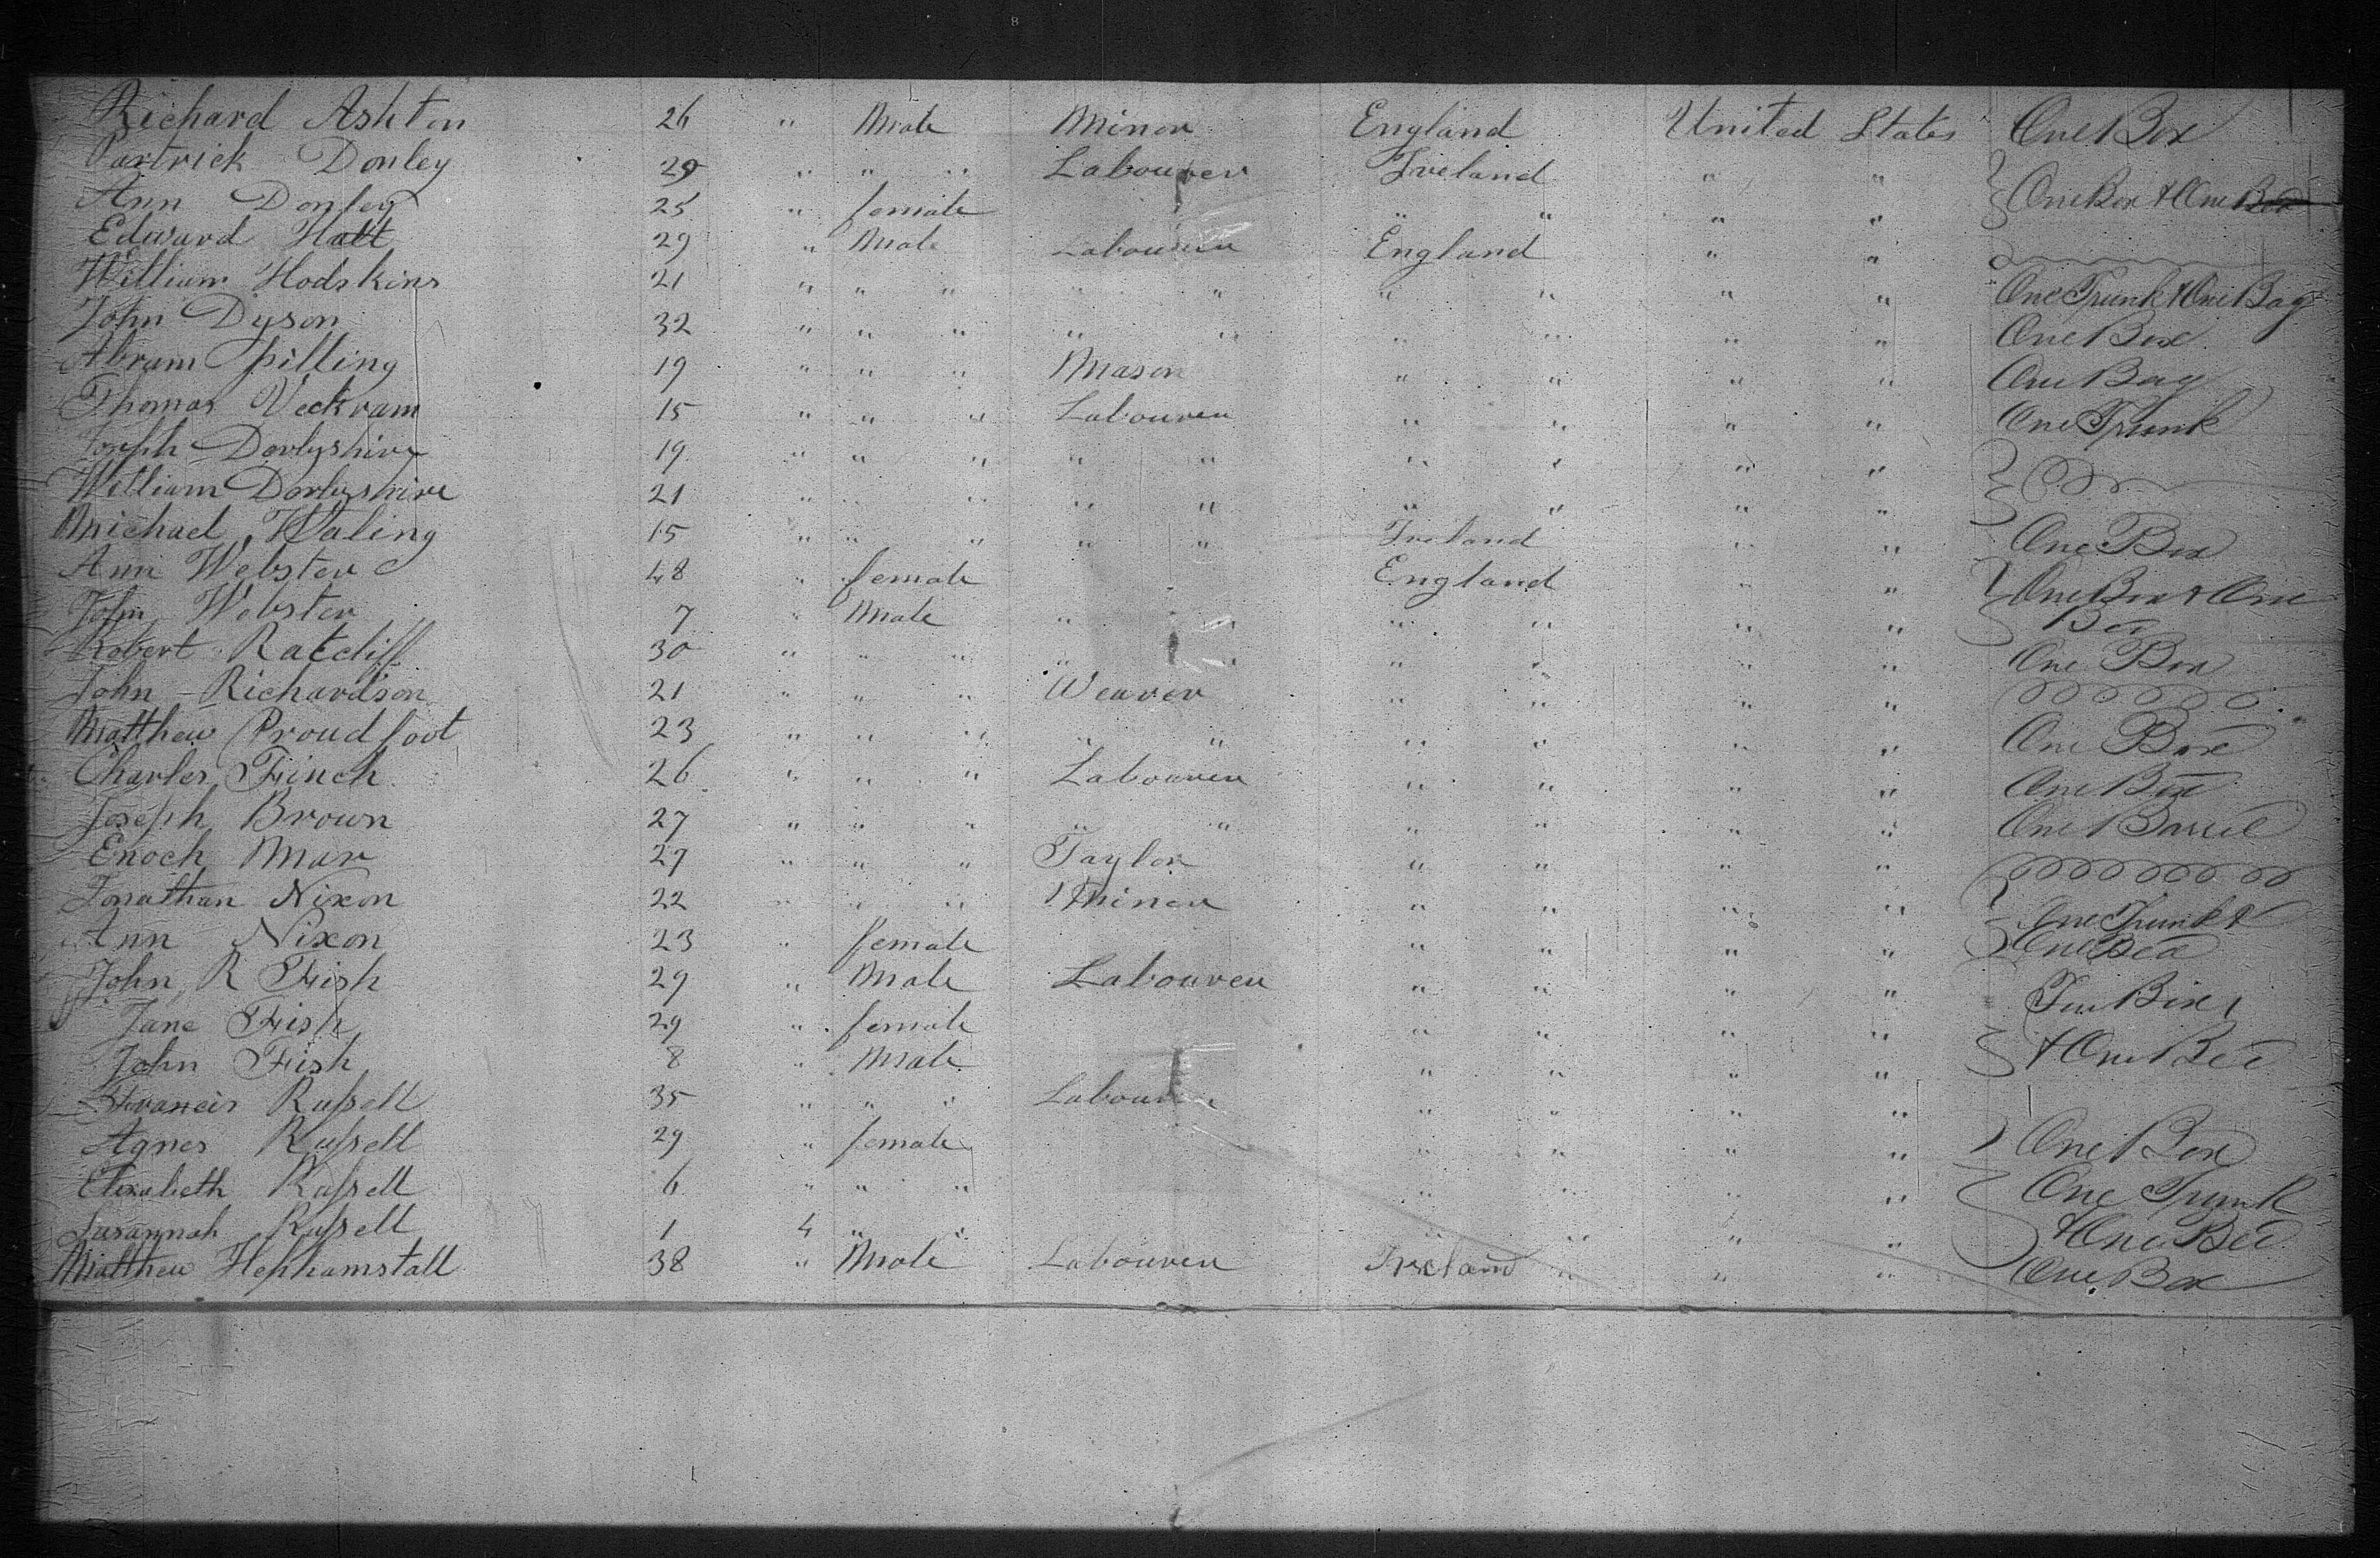 8
Richard Ashton 26 " Male Minor England United States One Box
Partrick Donley 29 " " " Labourer Ireland " "
Ann Donley 25 " female " " " " One Box & One Bed
Edward Hatt 29 " Male Labourer England " "
William Hodskins 21 " " " " " " " " " One Trunk & One Bag
John Dyson 32 " " " " " " " " " One Box
Abram Pilling 19 " " " Mason " " " " One Bag
Thomas 15 " " " Labourer " " " " One Trunk
Joseph Derbyshire 19 " " " " " " " " "
William Derbyshire 21 " " " " " " " " "
Michael Waling 15 " " " " " Ireland " " One Box
Ann Webster 48 " female England " " One Box & One
John Webster 7 " Male " " " " " " Bed
Robert Ratcliff 30 " " " " " " " " " One Box
John Richardson 21 " " " Weaver " " " "
Matthew Proudfoot 23 " " " " " " " " " One Box
Charles Finch 26 " " " Labourer " " " " One Box
Joseph Brown 27 " " " " " " " " " One Barrel
Enoch Mar 27 " " " Taylor " " " "
Jonathan Nixon 22 " " " Miner " " " " One Trunk &
Ann Nixon 23 " female " " " " One Bed
John R Fish 29 " Male Labourer " " " " Two Boxes
Jane Fish 29 " female " " " "
John Fish 8 " Male " " " " & One Bed
Francis Russell 35 " " " Labourer " " " "
Agnes Russell 29 " female " " " " One Box
Elizabeth Russell 6 " " " " " " " One Trunk
Susannah Russell 1 4 " " " " " " & One Bed
Matthew Hephamstall 38 " Male Labourer Ireland " " " One Box